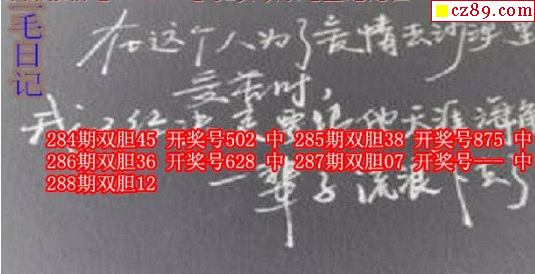 cz89.com
三毛日记
在这个人为了爱情去沙漠里
受苦时，
我已经决定要跟他天涯海角
284期双胆45 开奖号502 中 285期双胆38 开奖号875 中
286期双胆36 开奖号628 中 287期双胆07 开奖号--- 中
288期双胆12
一辈子流浪下去了